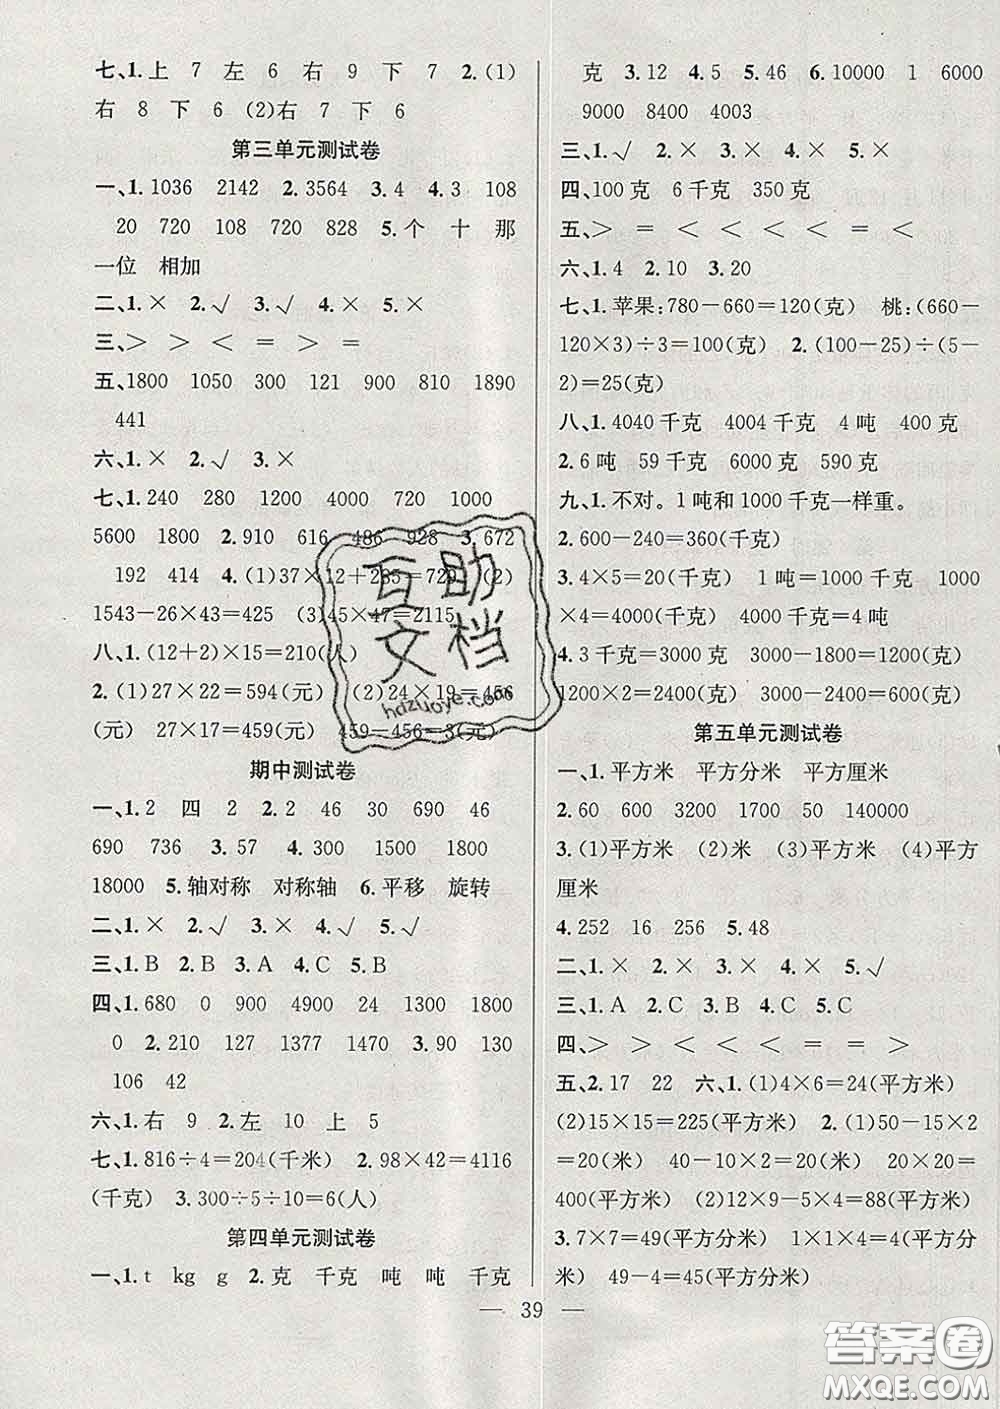 七、1.上 7 左 6 右 9 下 7 2.(1)
右 8 下 6 (2)右 7 下 6
第三单元测试卷
一、1.1036 2142 2.3564 3.4 4.3 108
20 720 108 720 828 5.个 十 那
一位 相加
二、1.× 2.√ 3.√ 4.√ 5.×
三、> > < = > =
五、1800 1050 300 121 900 810 1890
441
六、1.× 2.√ 3.×
七、1.240 280 1200 4000 720 1000
5600 1800 2.910 616 486 928 3.672
192 414 4.(1)37×12+285=729 (2)
1543-26×43=425 (3)45×47=2115
八、1.(12+2)×15=210(人)
2.(1)27×22=594(元) (2)24×19=456
(元) 27×17=459(元) 459-456=3(元)
期中测试卷
一、1.2 四 2 2.2 46 30 690 46
690 736 3.57 4.300 1500 1800
18000 5.轴对称 对称轴 6.平移 旋转
二、1.× 2.√ 3.× 4.√ 5.√
三、1.B 2.B 3.A 4.C 5.B
四、1.680 0 900 4900 24 1300 1800
0 2.210 127 1377 1470 3.90 130
106 42
六、1.右 9 2.左 10 上 5
七、1.816÷4=204(千米) 2.98×42=4116
(千克) 3.300÷5÷10=6(人)
第四单元测试卷
一、1.t kg g 2.克 千克 吨 吨 千克
克 3.12 4.5 5.46 6.10000 1 6000
9000 8400 4003
三、1.√ 2.× 3.× 4.× 5.×
四、100克 6千克 350克
五、> = < < < < = <
六、1.4 2.10 3.20
七、1.苹果:780-660=120(克) 桃:(660-
120×3)÷3=100(克) 2.(100-25)÷(5-
2)=25(克)
八、1.4040千克 4004千克 4吨 400克
2.6吨 59千克 6000克 590克
九、1.不对。1吨和1000千克一样重。
2.600-240=360(千克)
3.4×5=20(千克) 1吨=1000千克 1000
×4=4000(千克) 4000千克=4吨
4.3千克=3000克 3000-1800=1200(克)
1200×2=2400(克) 3000-2400=600(克)
第五单元测试卷
一、1.平方米 平方分米 平方厘米
2.60 600 3200 1700 50 140000
3.(1)平方米 (2)米 (3)平方米 (4)平方
厘米
4.252 16 256 5.48
二、1.× 2.× 3.× 4.× 5.√
三、1.A 2.C 3.B 4.C 5.C
四、> > < < < = = >
五、2.17 22 六、1.(1)4×6=24(平方米)
(2)15×15=225(平方米) 2.(1)50-15×2
=20(米) 40-10×2=20(米) 20×20=
400(平方米) (2)12×9-5×4=88(平方米)
3.7×7=49(平方分米) 1×1×4=4(平方分
米) 49-4=45(平方分米)
— 39 —
互助
文档
hdzuoye.com
答案圈
MXQE.COM